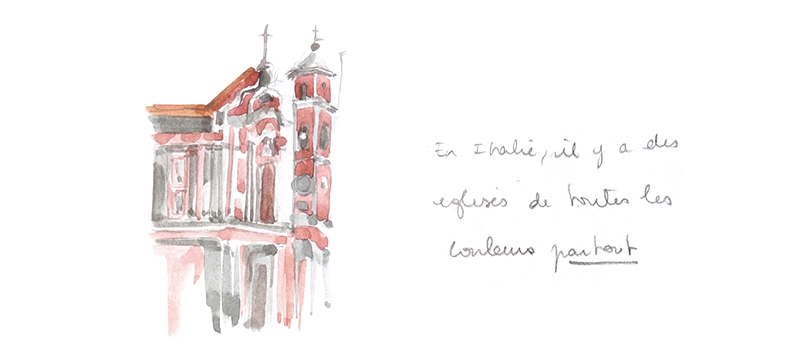 En Italie, il y a des
églises de toutes les
couleurs partout